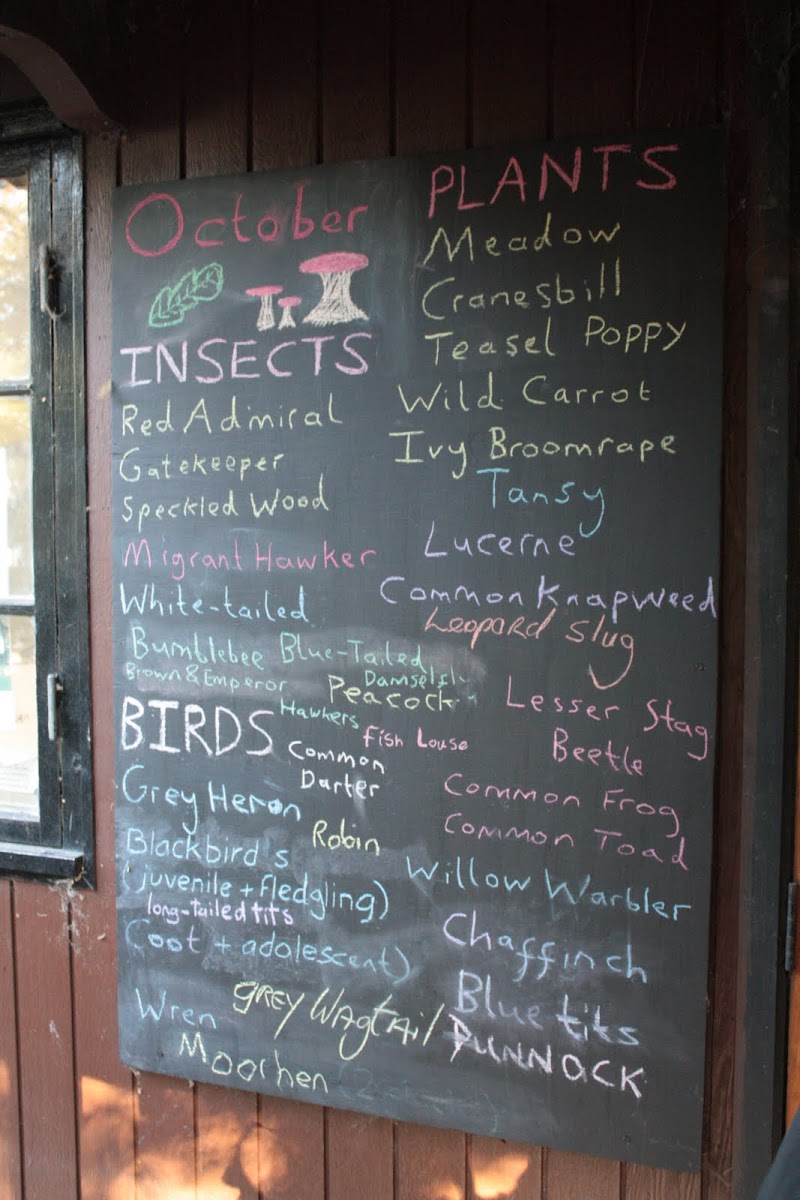 October
INSECTS
Red Admiral
Gatekeeper
Speckled Wood
Migrant Hawker
White-tailed
Bumblebee Blue-Tailed
Damselfly
Brown & Emperor
Hawkers
Peacock
Fish Louse
Common
Darter
BIRDS
Grey Heron
Robin
Blackbird's
(juvenile + fledgling)
long-tailed tits
Coot + adolescent)
Wren
GREY WAgtAil
Moorhen
PLANTS
Meadow
Cranesbill
Teasel Poppy
Wild Carrot
Ivy Broomrape
Tansy
Lucerne
Common Knapweed
Leopard Slug
Lesser Stag
Beetle
Common Frog
Common Toad
Willow Warbler
Chaffinch
Blue tits
DUNNOCK